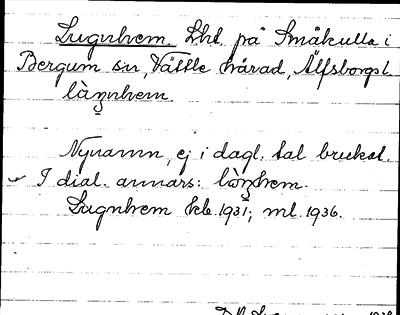 Lugnhem. Lht på Småkulla i
Bergum sn, Vättle härad, Älfsborgs l.
làŋnhem.
Nynamn, ej i dagl. tal brukat.
I dial. annars: lòŋhem.
Lugnhem kb. 1931; ml. 1936.